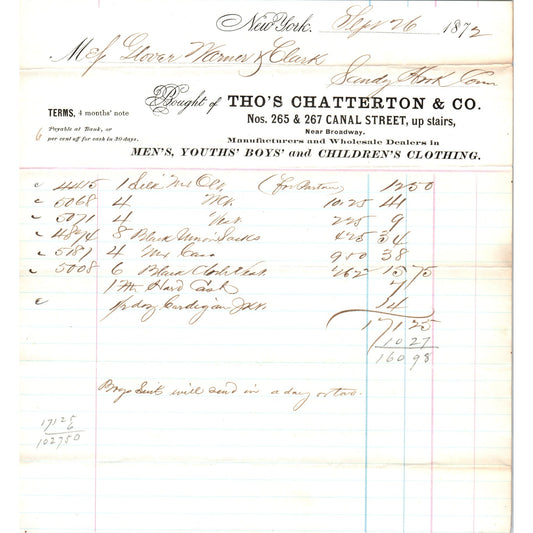 New York. Sept 26 1872
Mess Glover Warner & Clark
Sandy Hook Conn
Bought of THO'S CHATTERTON & CO.
Nos. 265 & 267 CANAL STREET, up stairs,
Near Broadway.
Manufacturers and Wholesale Dealers in
MEN'S, YOUTHS' BOYS' and CHILDREN'S CLOTHING.
TERMS, 4 months' note
Payable at Bank, or
6 per cent off for cash in 30 days.
4445 1 Silk 1250
5068 4 1025 41
5071 4 Vest 225 9
4894 8 Black Union Sacks 425 34
5187 4 950 38
5008 6 Black 262 15 75
1 Hard Cash 7
Cardigan 14
171 25
10 27
160 98
Boys Suits will send in a day or two.
171 25
6
102750